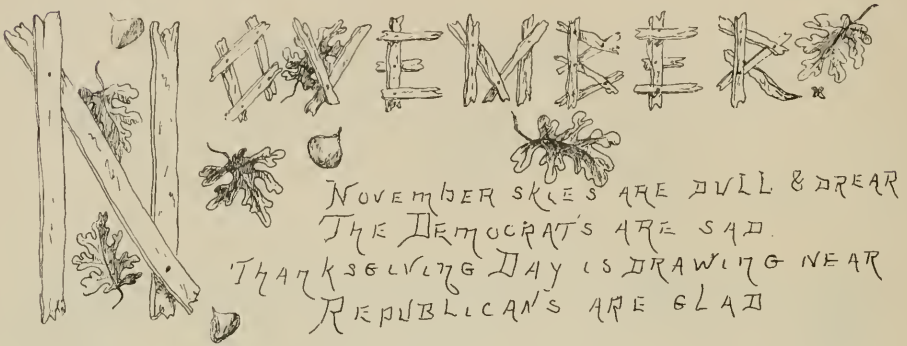 NOVEMBER.
NOVEMBER SKIES ARE DULL & DREAR
THE DEMOCRAT'S ARE SAD.
THANKSGIVING DAY IS DRAWING NEAR
REPUBLICAN'S ARE GLAD